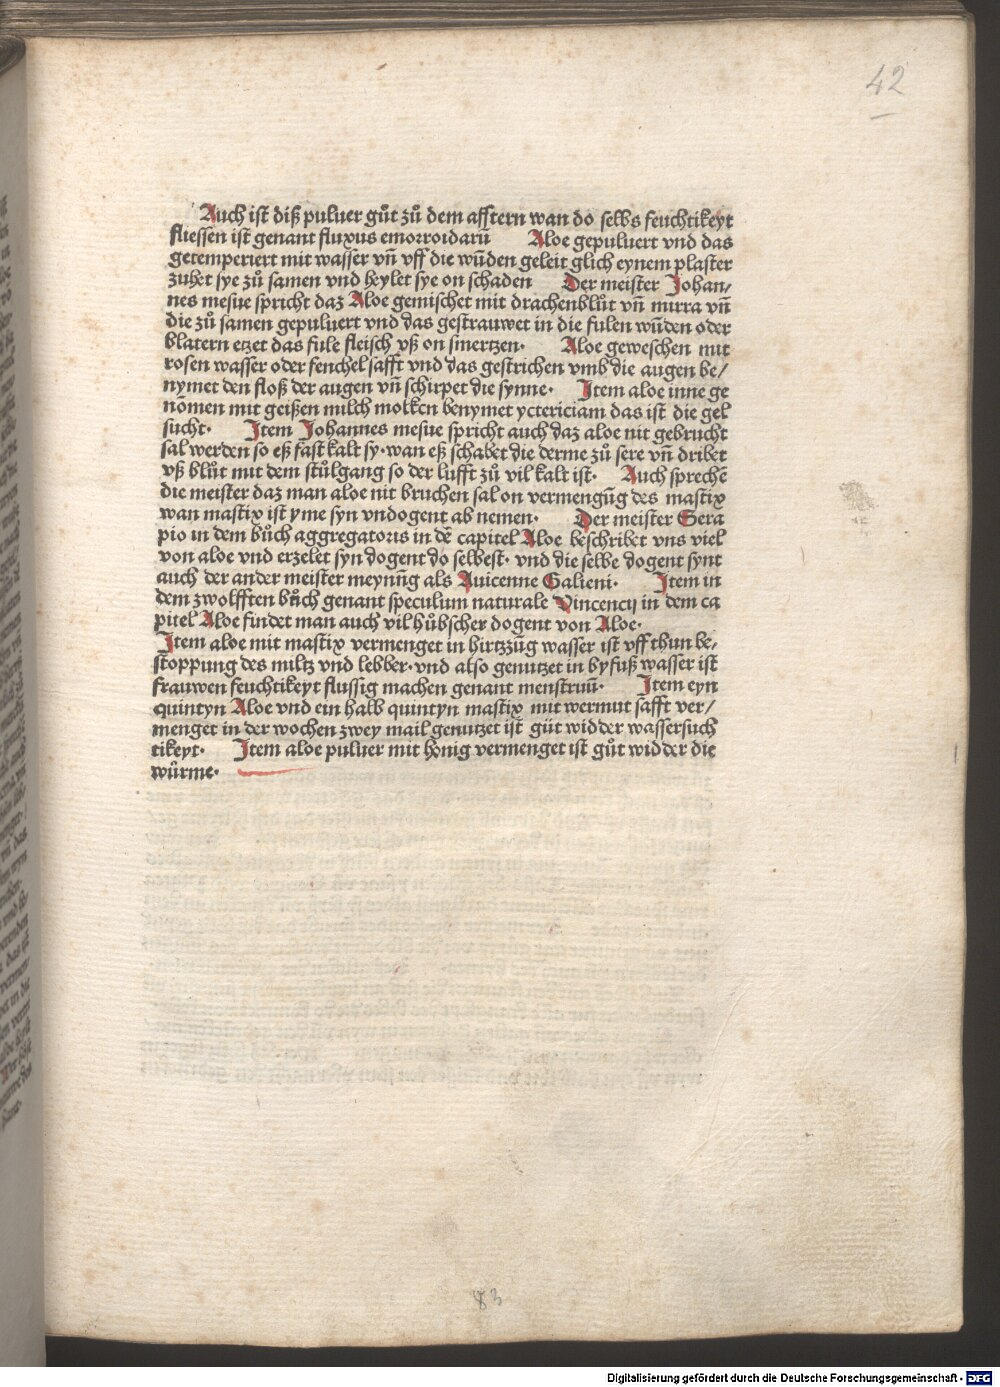 42
Auch ist diß puluer gůt zů dem afftern wan do selbs feuchtikeyt
fliessen ist genant fluxus emorroidarū Aloe gepuluert vnd das
getemperiert mit wasser vn̄ vff die wūden geleit glich eynem plaster
zuhet sye zů samen vnd heylet sye on schaden Der meister Johan/
nes mesue spricht daz Aloe gemischet mit drachenblůt vn̄ mirra vn̄
die zů samen gepuluert vnd das gestrauwet in die fulen wūden oder
blatern etzet das fule fleisch vß on smertzen· Aloe geweschen mit
rosen wasser oder fenchel safft vnd das gestrichen vmb die augen be/
nymet den floß der augen vn̄ schirpet die synne· Item aloe inne ge
nōmen mit geißen milch molken benymet yctericiam das ist die gel
sucht· Item Johannes mesue spricht auch daz aloe nit gebrucht
sal werden so eß fast kalt sy·wan eß schabet die derme zů sere vn̄ dribet
vß blůt mit dem stůlgang so der lufft zů vil kalt ist· Auch sprechē
die meister daz man aloe nit bruchen sal on vermengūg des mastix
wan mastix ist yme syn vndogent ab nemen· Der meister Sera
pio in dem bůch aggregatoris in dē capitel Aloe beschribet vns viel
von aloe vnd erzelet syn dogent do selbest· vnd die selbe dogent synt
auch der ander meister meynūg als Auicenne Galieni· Item in
dem zwolfften bůch genant speculum naturale Vincencij in dem ca
pitel Aloe findet man auch vil hůbscher dogent von Aloe·
Item aloe mit mastix vermenget in hirtzzūg wasser ist vff thun be/
stoppung des miltz vnd lebber·vnd also genutzet in byfuß wasser ist
frauwen feuchtikeyt flussig machen genant menstruū· Item eyn
quintyn Aloe vnd ein halb quintyn mastix mit wermut safft ver/
menget in der wochen zwey mail genutzet ist gůt widder wassersuch
tikeyt· Item aloe puluer mit honig vermenget ist gůt widder die
wůrme·
83
Digitalisierung gefördert durch die Deutsche Forschungsgemeinschaft - DFG